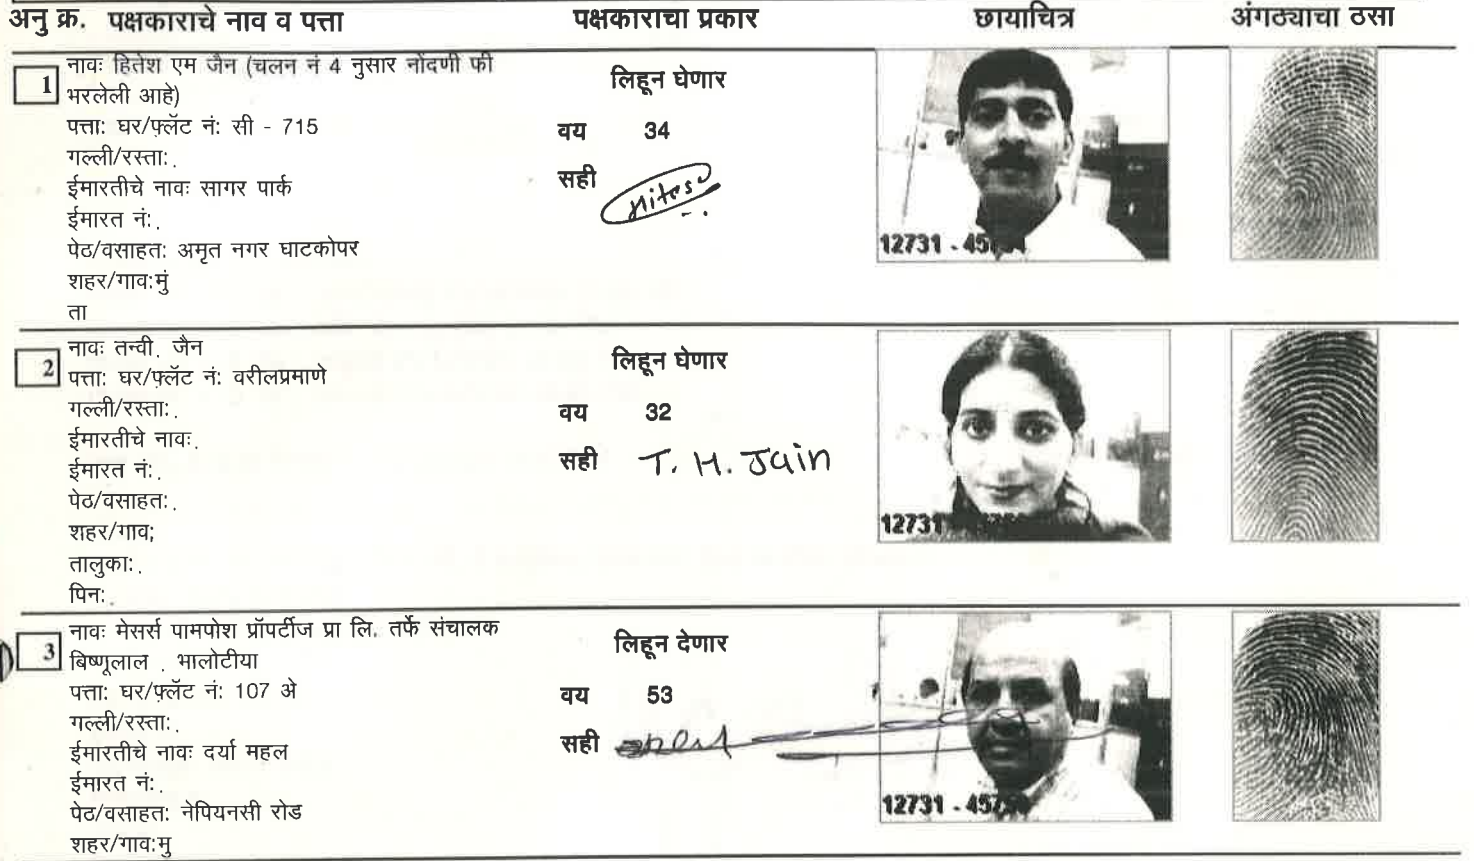 अनु क्र. पक्षकाराचे नाव व पत्ता पक्षकाराचा प्रकार छायाचित्र अंगठ्याचा ठसा
1
नावः हितेश एम जैन (चलन नं 4 नुसार नोंदणी फी
भरलेली आहे)
पत्ता: घर/फ्लॅट नं: सी - 715
गल्ली/रस्ता: .
ईमारतीचे नावः सागर पार्क
ईमारत नं: .
पेठ/वसाहत: अमृत नगर घाटकोपर
शहर/गाव:मुं
ता
लिहून घेणार
वय 34
सही
Hitesh
12731 - 45
2
नावः तन्वी. जैन
पत्ता: घर/फ्लॅट नं: वरीलप्रमाणे
गल्ली/रस्ता: .
ईमारतीचे नावः .
ईमारत नं: .
पेठ/वसाहत: .
शहर/गाव;
तालुका: .
पिन: .
लिहून घेणार
वय 32
सही T. H. Jain
12731
3
नावः मेसर्स पामपोश प्रॉपर्टीज प्रा लि. तर्फे संचालक
बिष्णूलाल . भालोटीया
पत्ता: घर/फ्लॅट नं: 107 अे
गल्ली/रस्ता: .
ईमारतीचे नावः दर्या महल
ईमारत नं: .
पेठ/वसाहत: नेपियनसी रोड
शहर/गाव:मु
लिहून देणार
वय 53
सही
12731 - 457